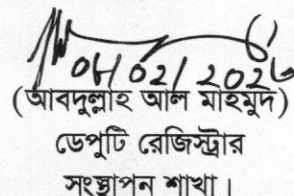 04/02/2026
(আবদুল্লাহ আল মাহমুদ)
ডেপুটি রেজিস্ট্রার
সংস্থাপন শাখা।